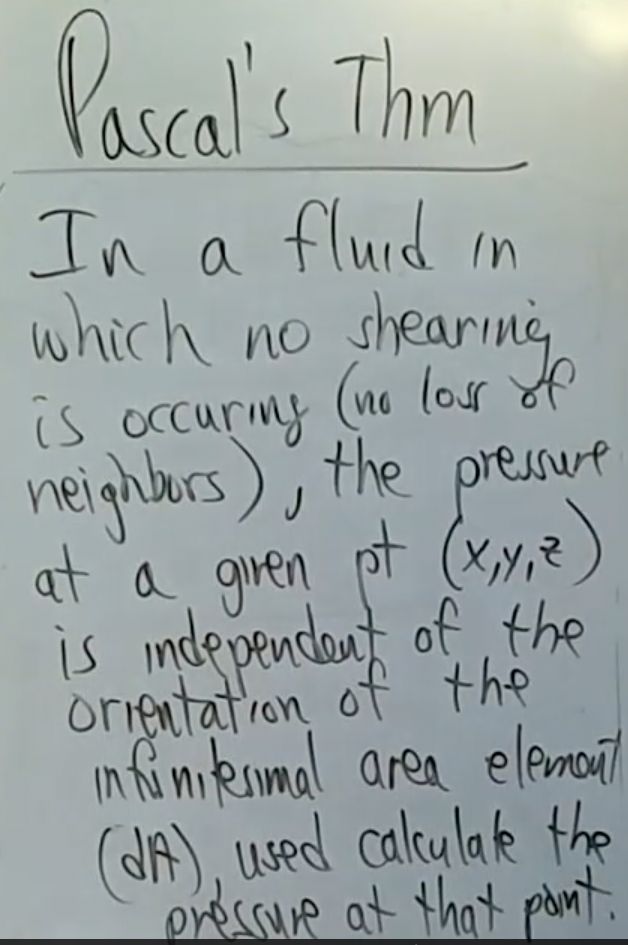 Pascal's Thm
In a fluid in
which no shearing
is occuring (no loss of
neighbors), the pressure
at a given pt (x,y,z)
is independent of the
orientation of the
infinitesimal area element
(dA), used calculate the
pressure at that point.